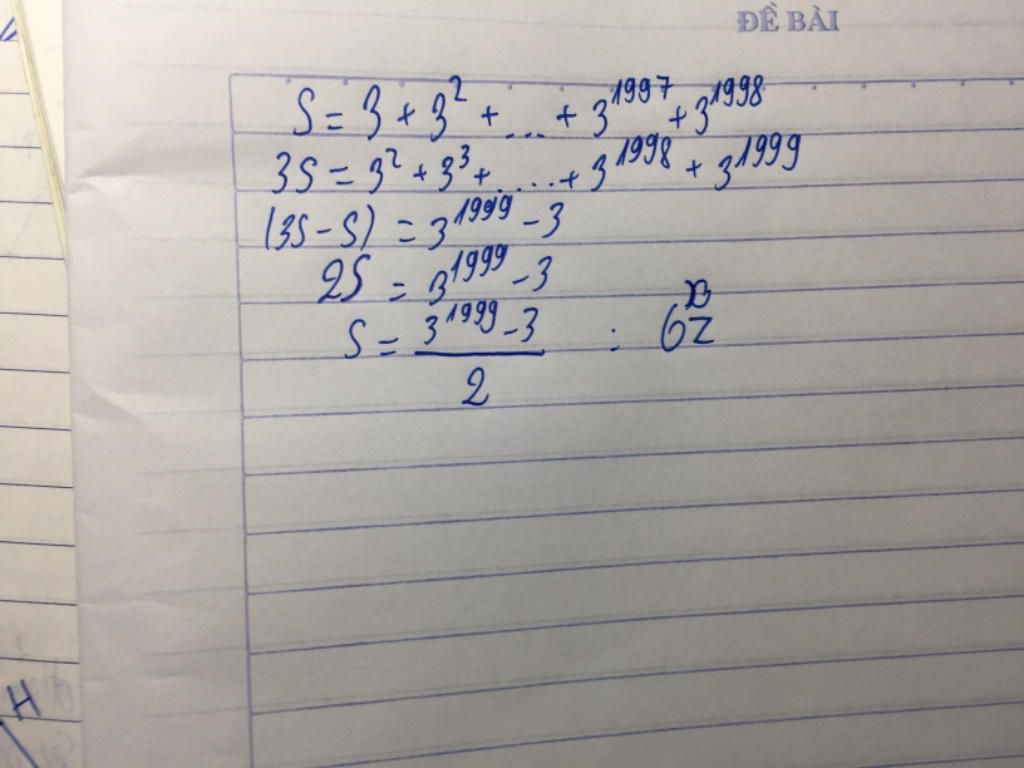 ĐỀ BÀI
S = 3 + 3² + ... + 3¹⁹⁹⁷ + 3¹⁹⁹⁸
3S = 3² + 3³ + .... + 3¹⁹⁹⁸ + 3¹⁹⁹⁹
(3S - S) = 3¹⁹⁹⁹ - 3
2S = 3¹⁹⁹⁹ - 3
S = 3¹⁹⁹⁹ - 3 :
2
H